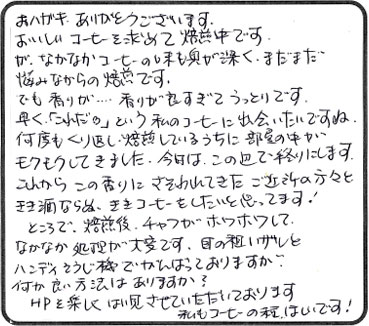 おハガキ ありがとうございます.
おいしい コーヒーを求めて 焙煎中です.
が、なかなかコーヒーの味も奥が深く、まだまだ
悩みながらの焙煎です.
でも香りが‥‥香りが良すぎてうっとりです.
早く、「これだ!!」という 私のコーヒーに出会いたいですね.
何度もくり返し焙煎しているうちに 部屋の中が
モクモクしてきました. 今日は、この辺で終りにします.
これから この香りに さそわれてきた ご近所の方々と
きき酒ならぬ、ききコーヒーをしたいと思ってます!
ところで、焙煎後、チャフが ホワホワして、
なかなか 処理が大変です. 目の粗いザルと
ハンディそうじ機でがんばっておりますが、
何か良い方法は ありますか?
HPを楽しく拝見させていただいております
私もコーヒーの 、はいです!